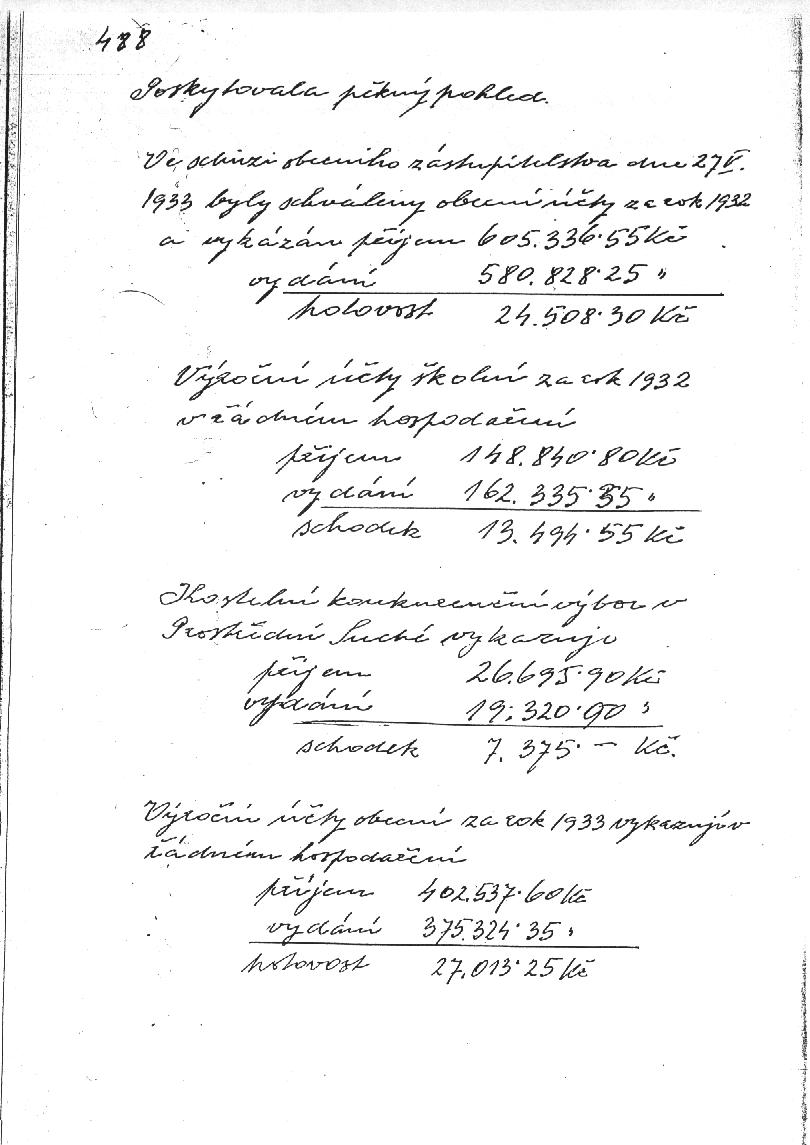 488
Poskytovala pěkný pohled.
Ve schůzi obecního zástupitelstva dne 27 V.
1933 byly schváleny obecní účty za rok 1932
a vykázán příjem 605.336·55 Kč
vydání 580.828·25 "
hotovost 24.508·30 Kč
Výroční účty školní za rok 1932
v řádném hospodaření
příjem 148.840·80 Kč
vydání 162.335·35 "
schodek 13.494·55 Kč
Kostelní konkurenční výbor v
Prostřední Suché vykazuje
příjem 26.695·90 Kč
vydání 19.320·90 "
schodek 7.375·— Kč.
Výroční účty obecní za rok 1933 vykazují v
řádném hospodaření
příjem 402.537·60 Kč
vydání 375.324·35 "
hotovost 27.013·25 Kč